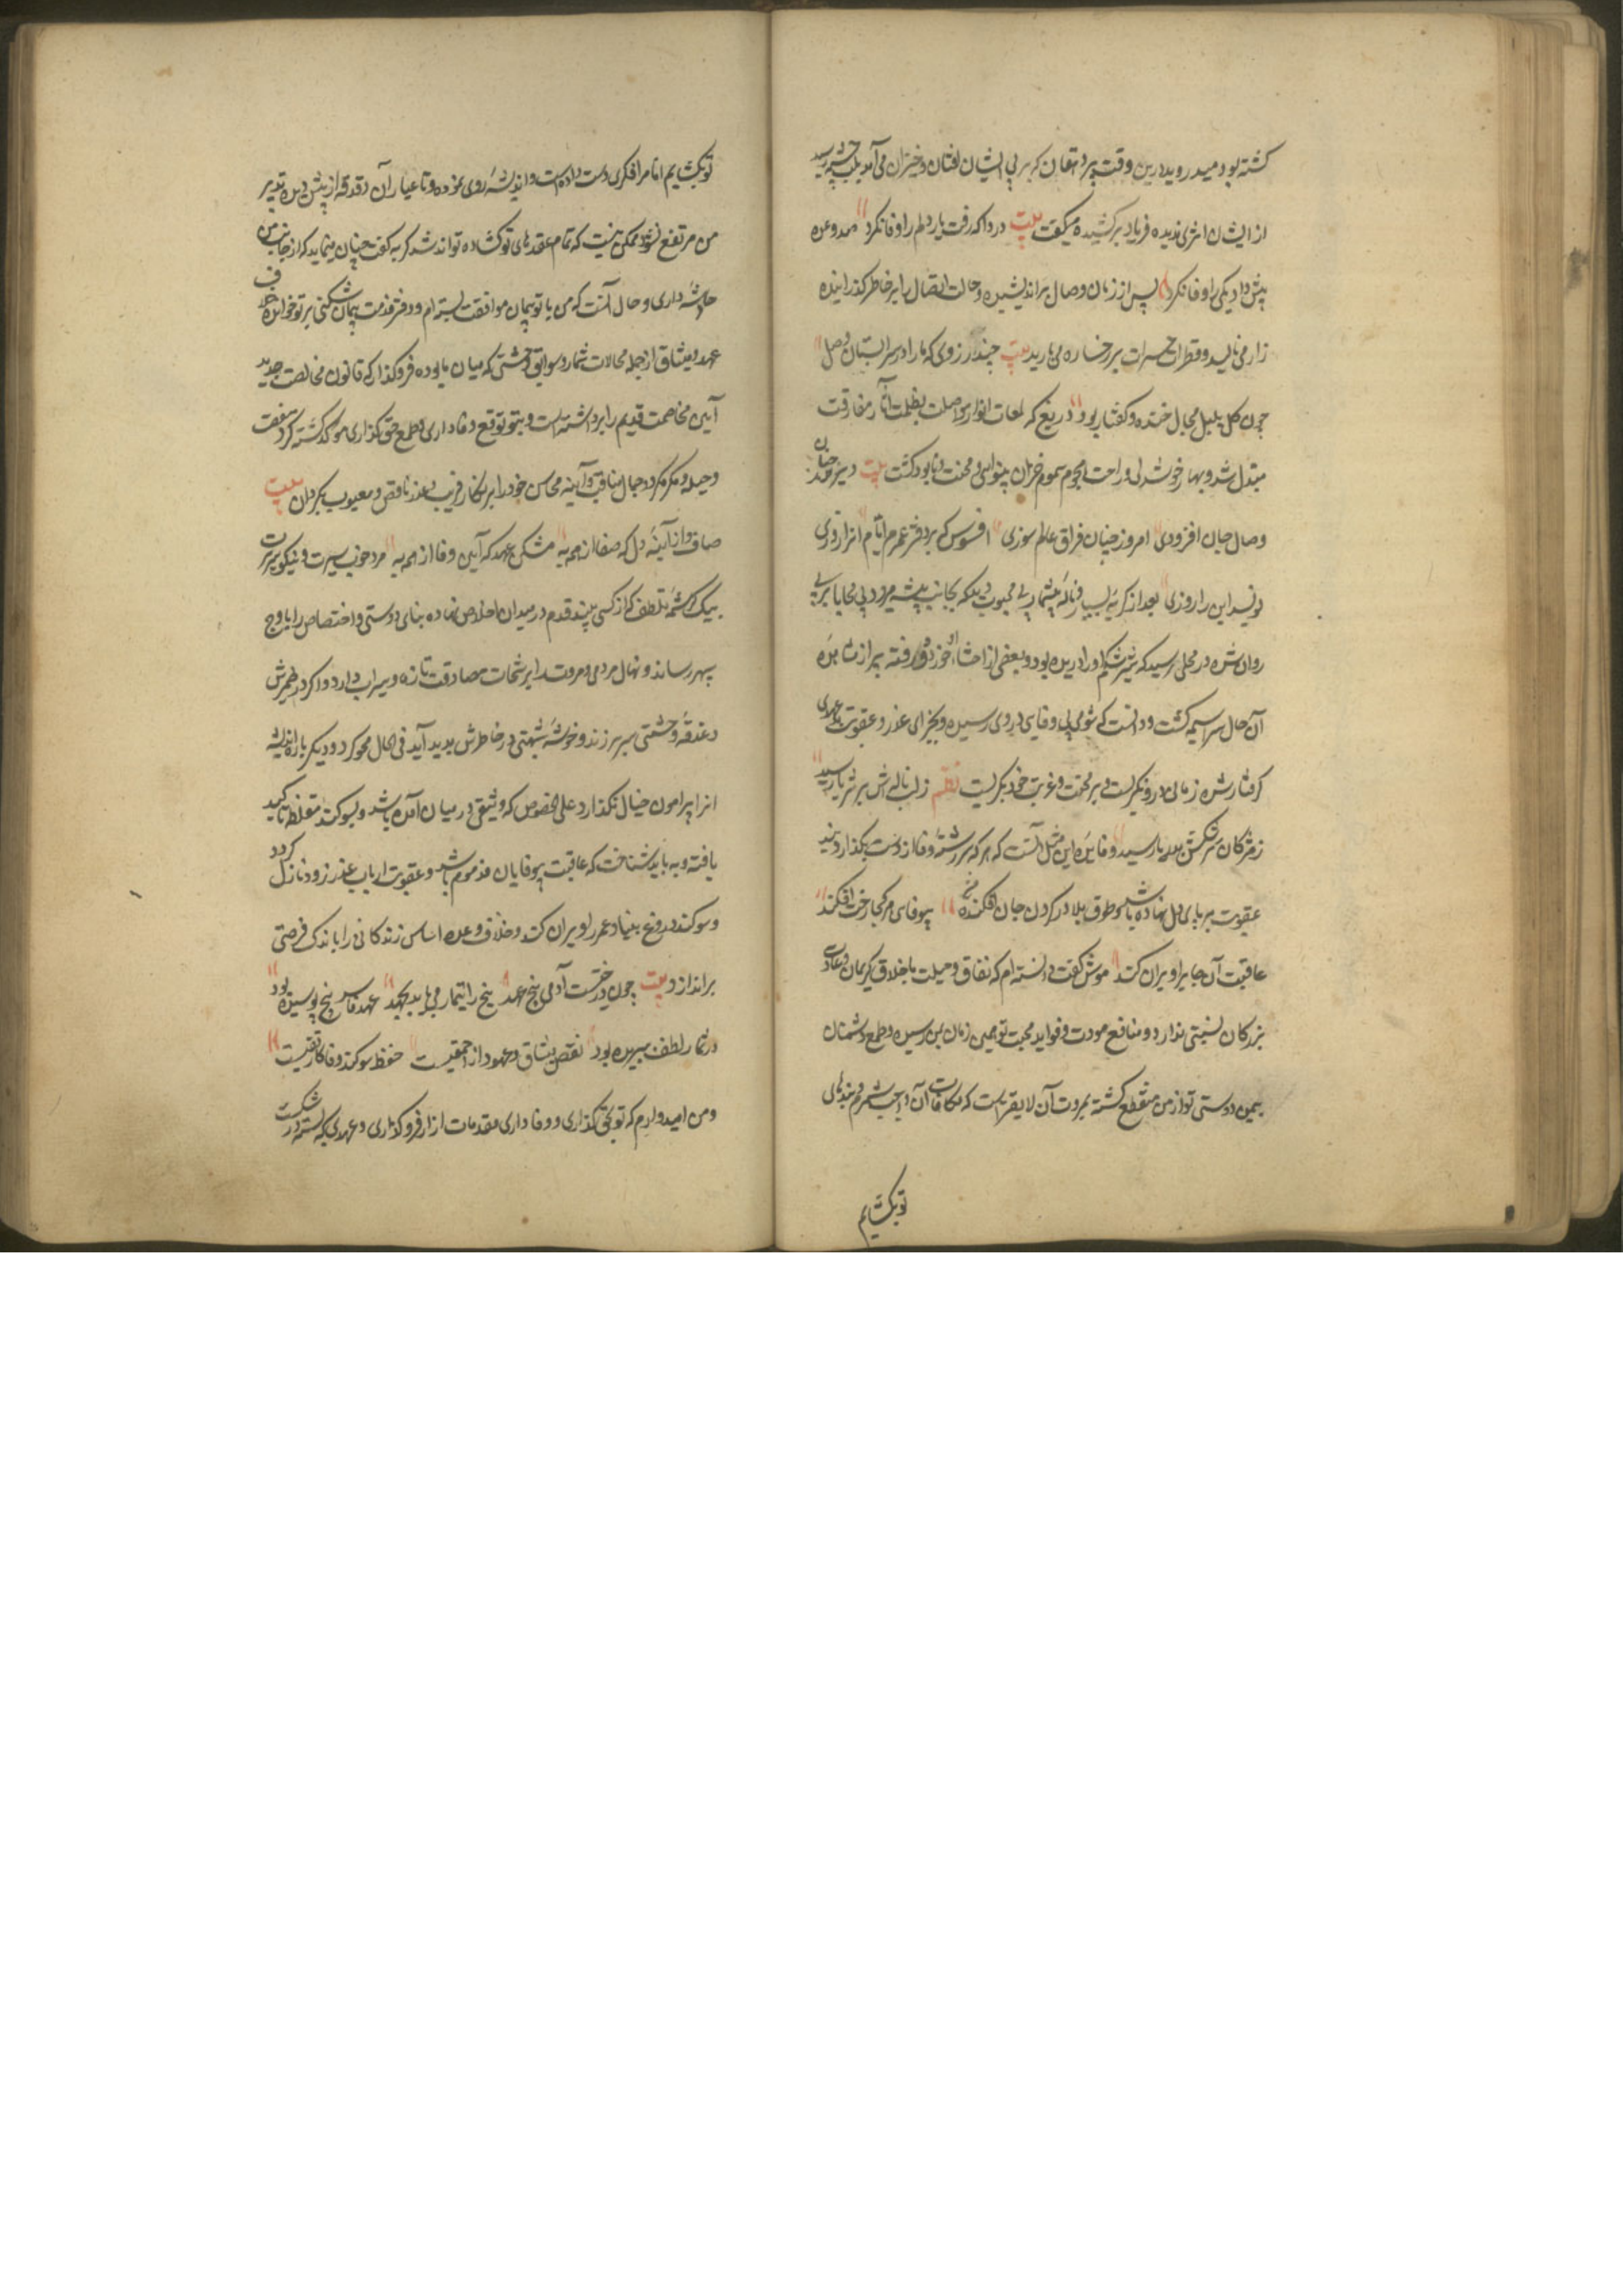 کشته بود میدروید درین وقت پیر دهقان که بر پی ایشان افتان و خیزان می آمد بلب چشمه رسید
از ایشان اثری ندیده فریاد برکشیده میکفت بیت دردا که رفت یار و دلم را وفا نکرد صد وعده
پیش داد یکی را وفا نکرد پس از زمان وصال براندیشیده و حالت اتصال را بر خاطر کذرانیده
زار می نالید و قطرات حسرات بر رخساره می بارید بیت خوش آن روزی که ما را در سرابستان وصل
چون کل و بلبل مجال خنده و کفتار بود دریغ که لمعات انوار مواصلت بظلمت آثار مفارقت
مبتدل شد و بهار خوشدلی و راحت بهجوم سموم خزان بینوایی و محنت نابود کشت بیت دیروز چنان
وصال جان افزودی امروز چنین فراق عالم سوزی افسوس که بر دفتر عمرم ایام انرا روزی
نویسد این را روزی بعد از کریه بسیار و ناله بیشمار پی محبوب دیکه بجانب بیشه می رود پی محابا بر پی
روان شده در محلی رسید که شیر شکم او را دریده بود و بعضی از احشاء او خورده و رفته پیر از مشاهده
آن حال سراسیمه کشت و دانست که شومی بی وفایی در وی رسیده و بجزای غدر و عقوبت بدعهدی
کرفتار شده زمانی در و نکریست و بر محنت و غربت خود بکریست نظم ز لب ناله اش بر ثریا رسید
ز مژکان سرشکش بدریا رسید و فایده این مثل آنست که هر که سر رشته وفا از دست بکذارد بند
عقوبت بر پای دل نهاده باشد و طوق بلا در کردن جان افکنده بیوفایی هر کجا رخت افکند
عاقبت آن جایرا ویران کند موش کفت دانسته ام که نفاق و حیلت با اخلاق کریمان و عادت
بزرکان نسبتی ندارد و منافع مودت و فواید محبت تو همین زمان بمن رسیده و طمع دشمنان
بیمن دوستی تو از من منقطع کشته بمروت آن لایقتر است که مکافات آن واجب شمرم و بندهای
توبکشایم
توبکشایم اما مرا فکری دست داده است و اندیشه روی نموده و تا غبار آن دقدقه از پیش دیده تدبیر
من مرتفع نشود ممکن نیست که تمام عقدهای تو کشاده تواند شد کربه کفت چنان مینماید که از جانب من
خدشه داری و حال آنست که من با تو پیمان موافقت بسته ام و دفتر مذمت پیمان شکنی بر تو خوانده خلاف
عهد و میثاق از جمله محالات شمار و سوابق وحشتی که میان ما بوده فروکذار که قانون مخالصت جدید
آیین مخاصمت قدیم را برداشته است و بتو توقع وفاداری و طمع حق کذاری موکد کشته کرد منقصت
و حیله و مکر مکرد و جمال مناقب و آینه محاسن خود را بزنکار فریب و غدر ناقص و معیوب مکردان بیت
صافی از آینه دل که صفا از همه به مشکن عهد که آیین وفا از همه به مرد خوب سیرت و نیکو سریرت
بیک کرشمه تلطف که از کسی بیند قدم در میدان اخلاص نهاده بنای دوستی و اختصاص را باوج
سپهر رساند و نهال مردمی و مروت را برشحات مصادقت تازه و سیراب دارد و اکر در ضمیرش
دغدغه وحشتی سر بر زند و خدشه شبهتی در خاطرش پدید آید فی الحال محو کرد و دیکر باره اندیشه
انرا پیرامون خیال نکذارد علی الخصوص که وثیقتی در میان آمده باشد و بسوکند مغلظه تاکید
یافته و بباید شناخت که عاقبت بیوفایان مذموم باشد و عقوبت ارباب غدر زود نازل کردد
و سوکند دروغ بنیاد عمر را ویران کند و خلاف وعده اساس زندکانی را باندک فرصتی
براندازد بیت چون درختست آدمی بیخ عهد بیخ را تیمار می باید بجهد عهد فاسد بیخ پوسیده بود
در ثمار لطف ببریده بود نقض میثاق و عهود از احمقیست حفظ سوکند و وفا کار تقیست
و من امیدوارم که تو بحق کذاری و وفاداری مقدمات ازار فروکذاری و عهدی که بسته در شکست